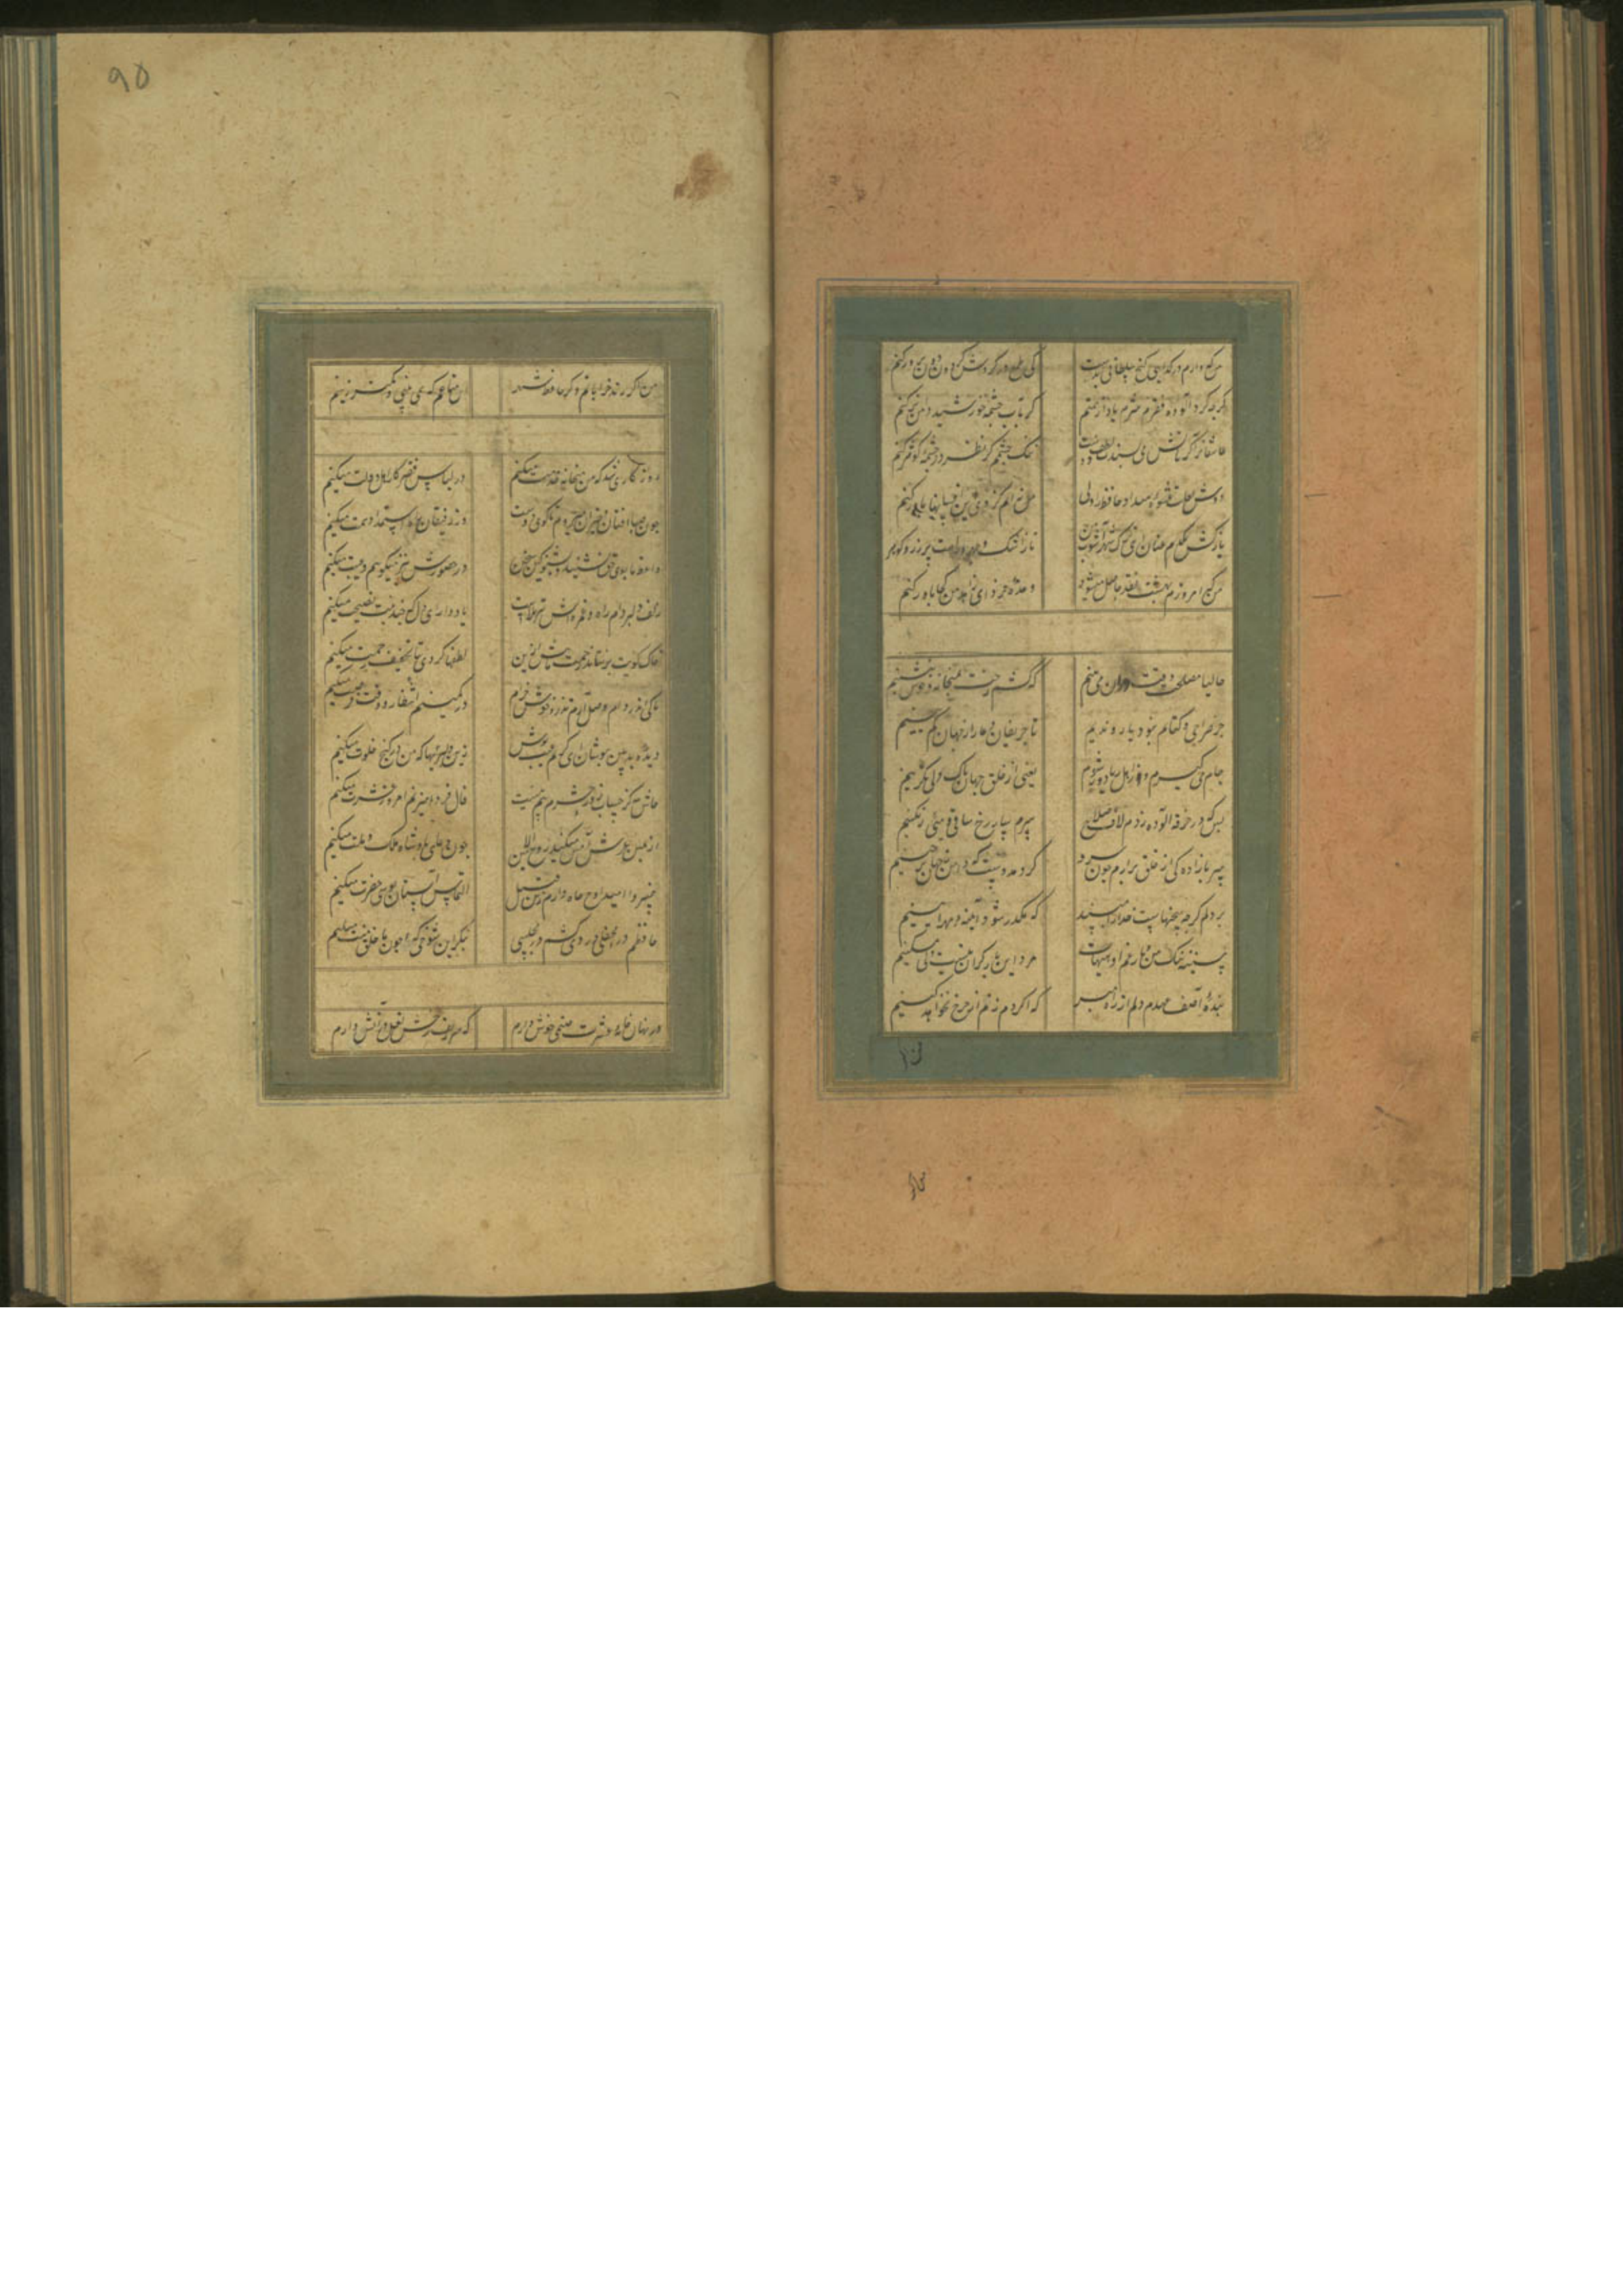 من که دارم در گدایی گنج سلطانی بدست
کی طمع در گردش گردون دون پرور کنم
گرچه گرد آلوده فقرم شرم باد از همتم
گر بآب چشمه خورشید دامن تر کنم
عاشقانرا گر در آتش می پسندد لطف دوست
تنگ چشمم گر نظر در چشمه کوثر کنم
دوش لعلت عشوه میداد حافظ را ولی
من نه آنم کز وی این افسانها باور کنم
بازکش یکدم عنان ای ترک شهر آشوب من
تا ز اشک و چهره راهت پر زر و گوهر کنم
من که امروزم بهشت نقد حاصل میشود
وعده فردای زاهد من کجا باور کنم
حالیا مصلحت وقت در آن می بینم
که کشم رخت بمیخانه و خوش بنشینم
جز صراحی و کتابم نبود یار و ندیم
تا حریفان دغا را ز جهان کم بینم
جام می گیرم و از اهل ریا دور شوم
یعنی از خلق جهان پاک دلی بگزینم
بس که در خرقه آلوده زدم لاف صلاح
شرم سار رخ ساقی و می رنگینم
سر بآزادگی از خلق برآرم چون سرو
گر دهد دست که دامن ز جهان برچینم
بر دلم گرد ستمهاست خدایا مپسند
که مکدر شود آیینه مهرآیینم
سینه تنگ من و بار غم او هیهات
مرد این بار گران نیست دل مسکینم
بنده آصف عهدم دلم از راه مبر
که اگر دم زنم از چرخ بخواهد کینم
۹۵
من اگر رند خراباتم و گر حافظ شهر
این متاعم که همی بینی و کمتر زینم
روزگاری شد که من میخانه خدمت میکنم
در لباس فقر کار اهل دولت میکنم
چون صبا افتان و خیزان میروم تا کوی دوست
وز رفیقان راه استمداد همت میکنم
واعظ ما بوی حق نشنید بشنو کین سخن
در حضورش نیز میگویم نه غیبت میکنم
زلف دلبر دام راه و غمزه اش تیر بلاست
یاد دار ای دل که چندینت نصیحت میکنم
خاک کویت بر نتابد زحمت ما بیش ازین
لطفها کردی بتا تخفیف زحمت میکنم
تا کی اندر دام وصل آرم تذرو خوش خرام
در کمینم انتظار وقت فرصت میکنم
دیده بدبین بپوشان ای کریم عیب پوش
زین دلیریها که من در کنج خلوت میکنم
حاش لله کز حساب روز حشرم بیم نیست
فال فردا میزنم امروز عشرت میکنم
از یمین عرش آمین میکند روح الامین
چون دعای پادشاه ملک و ملت میکنم
خسروا امید اوج جاه دارم زین قبل
التماس آستان بوسی حضرت میکنم
حافظم در محفلی دردی کشم در مجلسی
بنگر این شوخی که چون با خلق صنعت میکنم
در نهان خانه عشرت صنمی خوش دارم
کز سر زلف و رخش نعل در آتش دارم